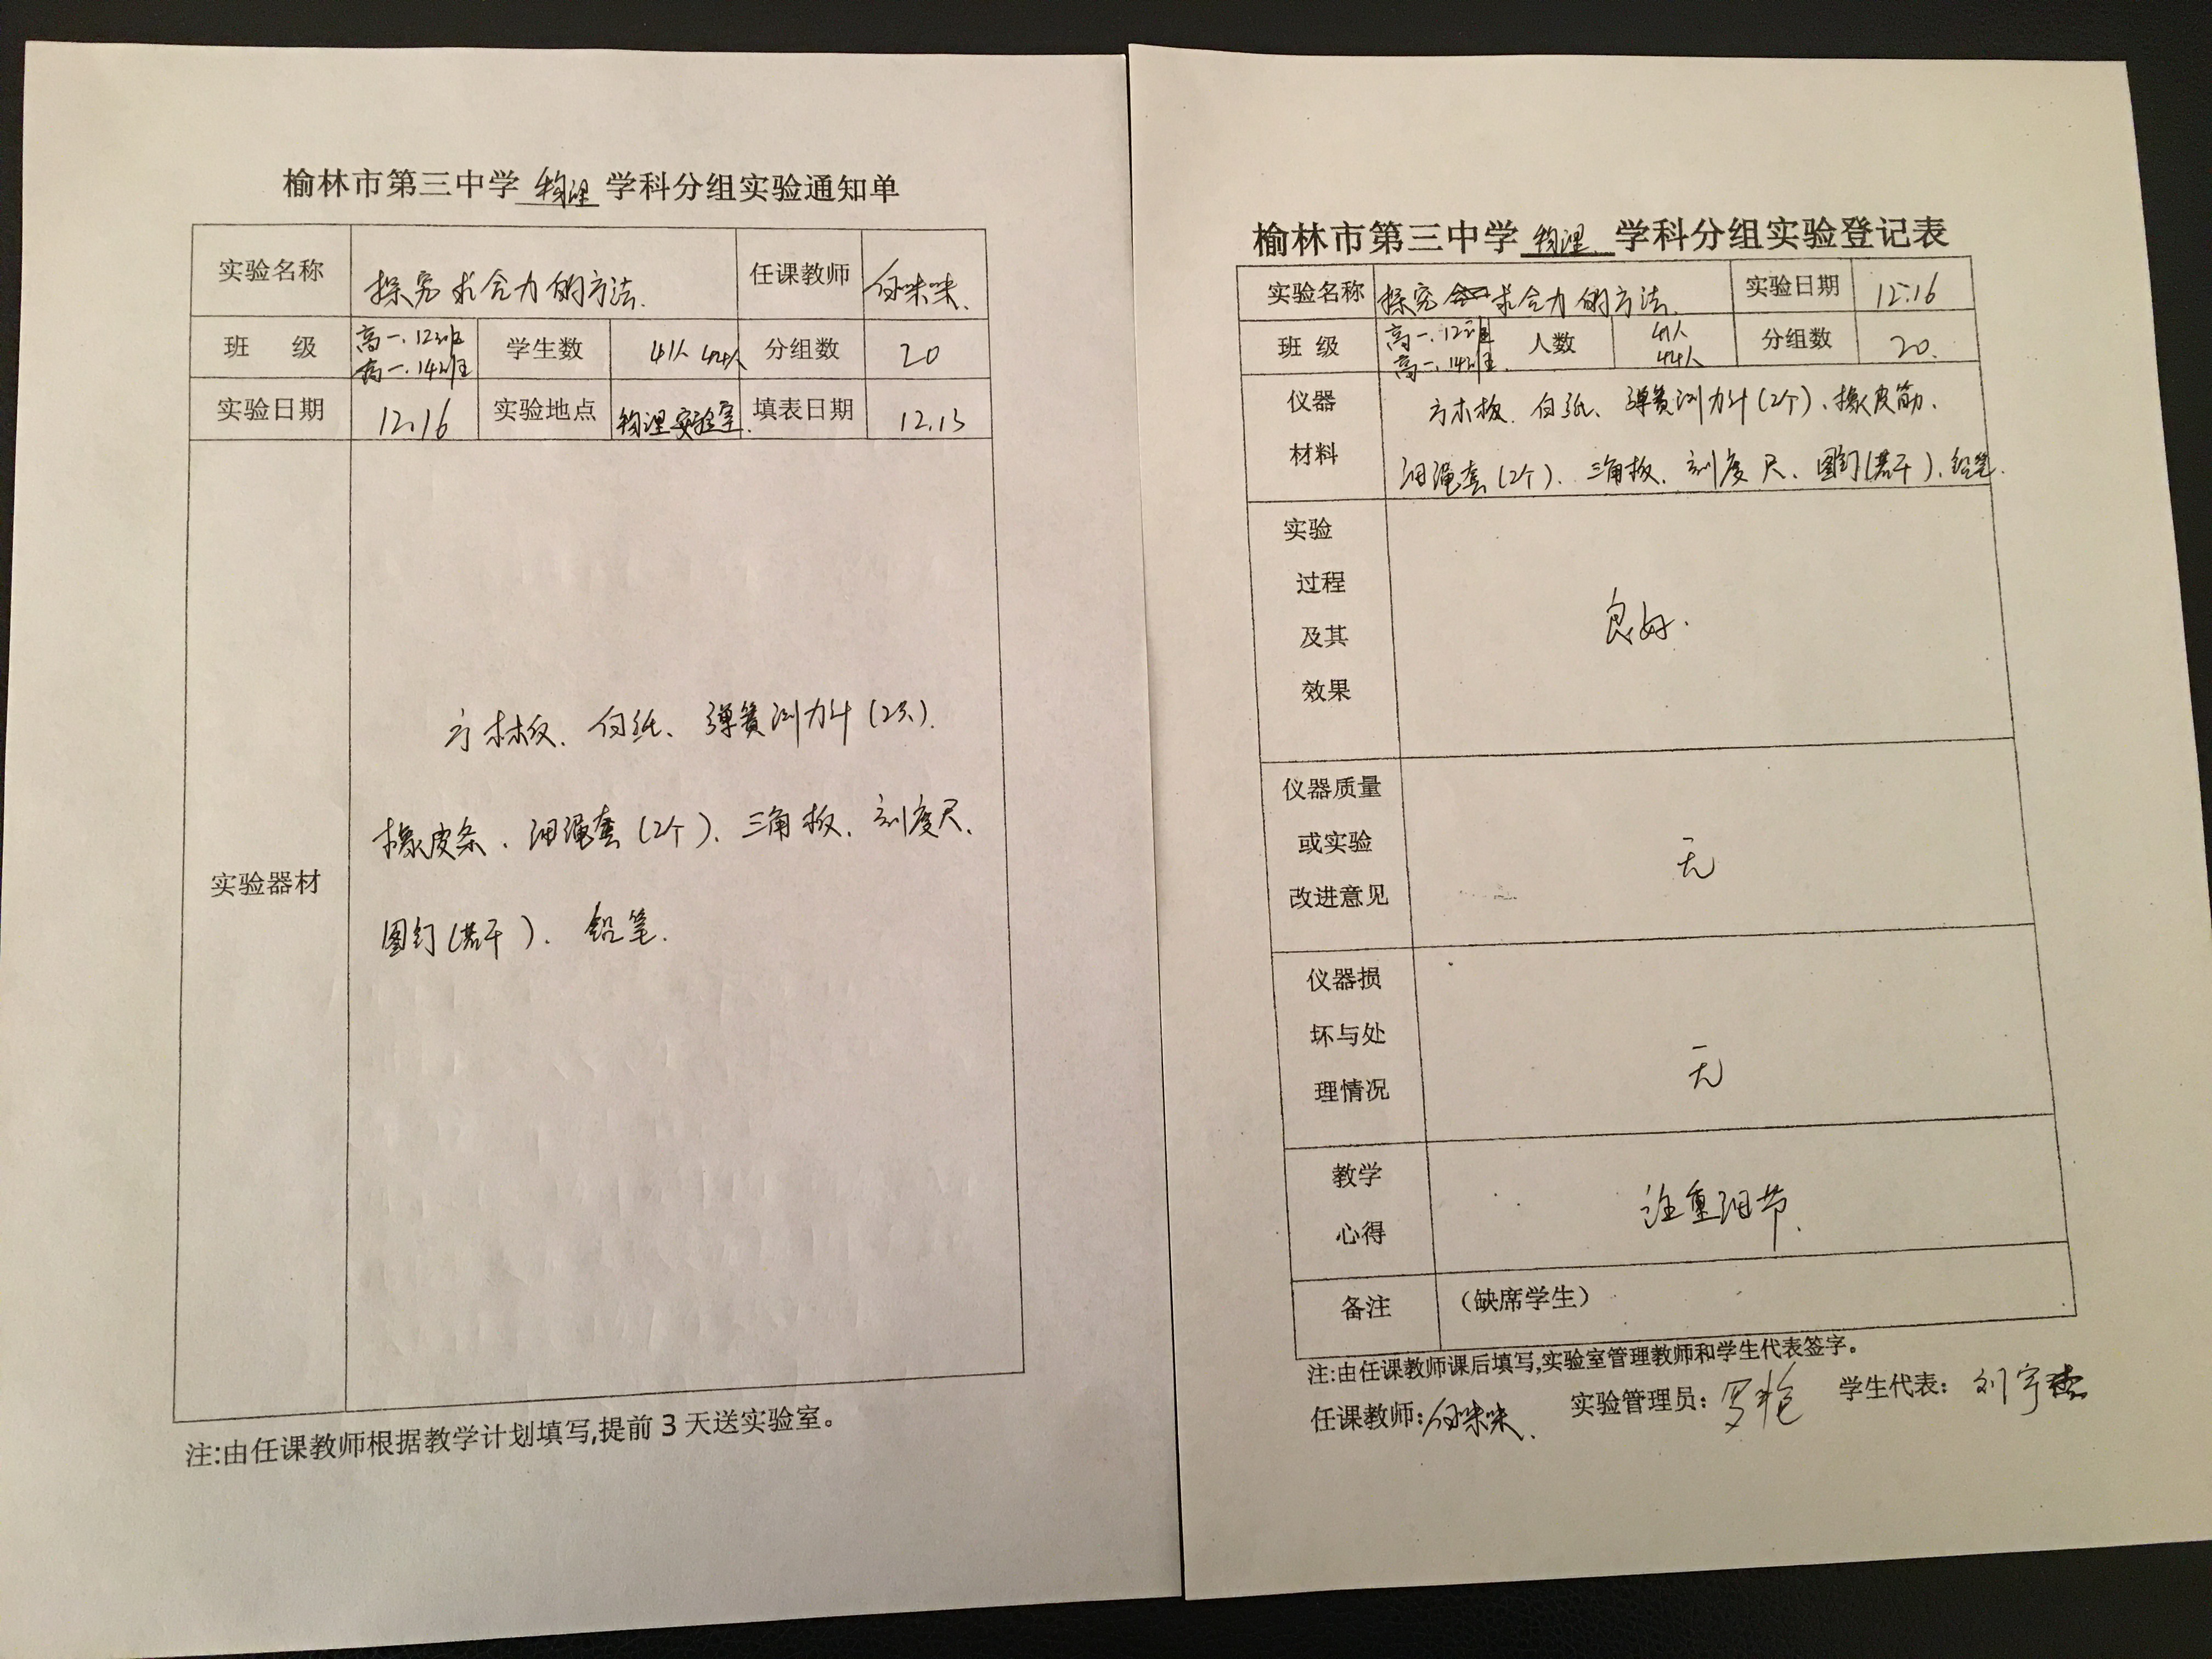 榆林市第三中学 物理 学科分组实验通知单
实验名称 探究求合力的方法. 任课教师
班 级 高一.12班 高一.14班 学生数 41人 44人 分组数 20
实验日期 12.16 实验地点 物理实验室. 填表日期 12.13
实验器材
方木板、白纸、弹簧测力计(2只).
橡皮条、细绳套(2个)、三角板、刻度尺、
图钉(若干)、铅笔.
注:由任课教师根据教学计划填写,提前 3 天送实验室。
榆林市第三中学 物理 学科分组实验登记表
实验名称 探究求合力的方法. 实验日期 12.16
班 级 高一.12班 高一.14班. 人数 41人 44人 分组数 20.
仪器
材料
方木板、白纸、弹簧测力计(2个)、橡皮筋、
细绳套(2个)、三角板、刻度尺、图钉(若干)、铅笔.
实验
过程
及其
效果
良好.
仪器质量
或实验
改进意见
无
仪器损
坏与处
理情况
无
教学
心得
注重细节.
备注 （缺席学生）
注:由任课教师课后填写,实验室管理教师和学生代表签字。
任课教师: 实验管理员: 学生代表: 刘宇